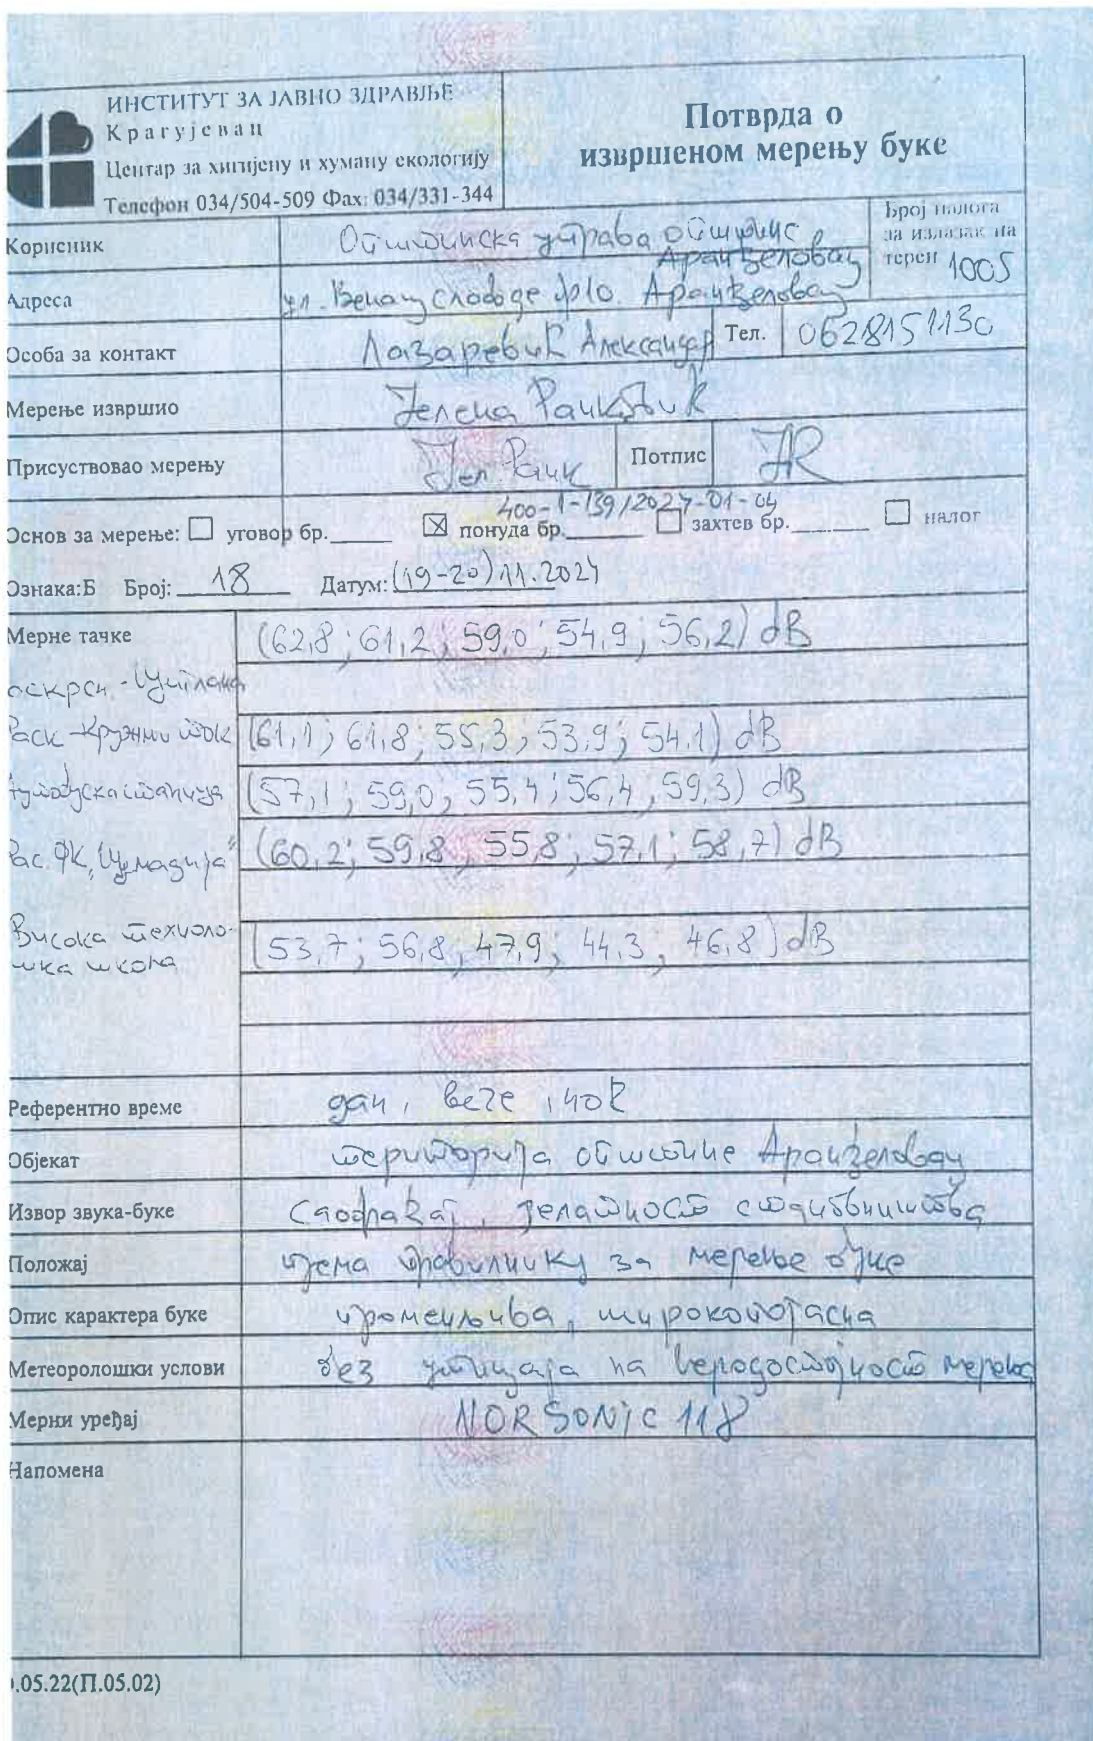 ИНСТИТУТ ЗА ЈАВНО ЗДРАВЉЕ
Крагујевац
Центар за хигијену и хуману екологију
Телефон 034/504-509 Фах: 034/331-344
Потврда о
извршеном мерењу буке
Корисник Општинска управа општине Аранђеловац
Број налога за излазак на терен 1005
Адреса ул. Венац слободе бр10. Аранђеловац
Особа за контакт Лазаревић Александар Тел. 0628151130
Мерење извршио Јелена Ранковић
Присуствовао мерењу Јел. Ранк Потпис JR
400-1-139/2024-01-04
Основ за мерење: уговор бр. ☒ понуда бр. захтев бр. налог
Ознака:Б Број: 18 Датум: (19-20) 11.2024
Мерне тачке (62,8; 61,2; 59,0; 54,9; 56,2) dB
оскрсн.
Раск-кружни ток (61,1; 61,8; 55,3; 53,9; 54,1) dB
аутобуска станица (57,1; 59,0; 55,4; 56,4; 59,3) dB
рас. ФК „Шумадија" (60,2; 59,8; 55,8; 57,1; 58,7) dB
Висока техноло-
шка школа (53,7; 56,8; 47,9; 44,3; 46,8) dB
Референтно време дан, вече, ноћ
Објекат територија општине Аранђеловац
Извор звука-буке Саобраћај, делатност становништва
Положај према правилнику за мерење буке
Опис карактера буке променљива, широкопојасна
Метеоролошки услови без утицаја на веродостојност мерења
Мерни уређај NORSONIC 118
Напомена
.05.22(П.05.02)